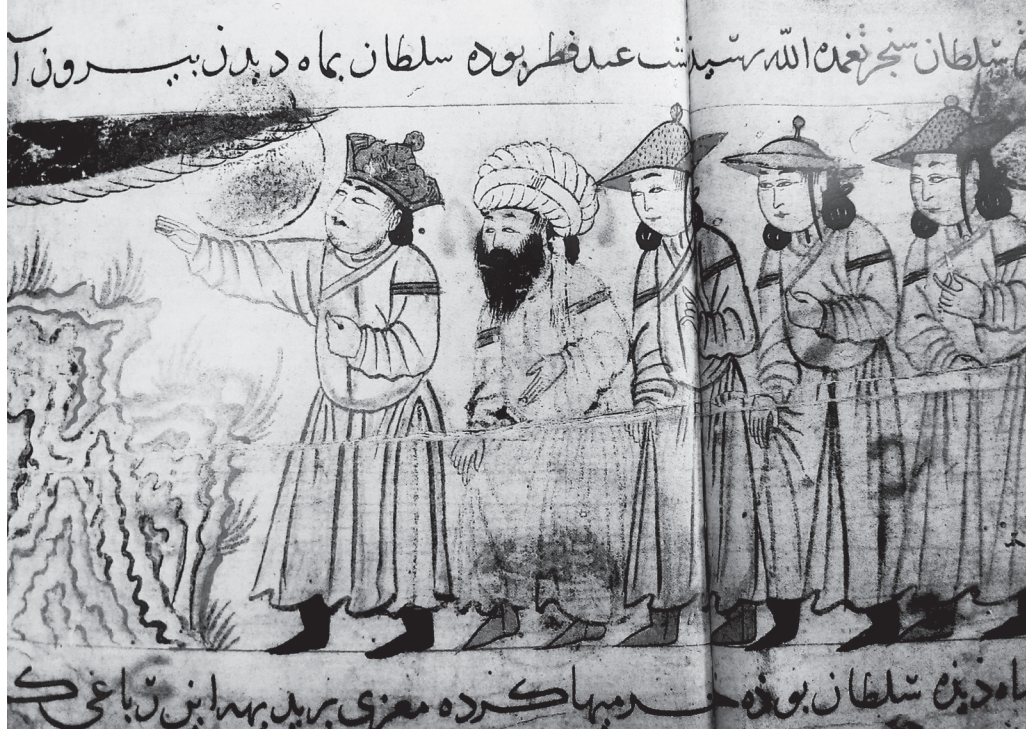 سلطان سنجر تغمده الله برسیذ شب عید فطر بوده سلطان بماه دیدن بیرون آ
ماه دیذه سلطان بوذه خرمیها کرده معزی بر بدیهه این رباعی